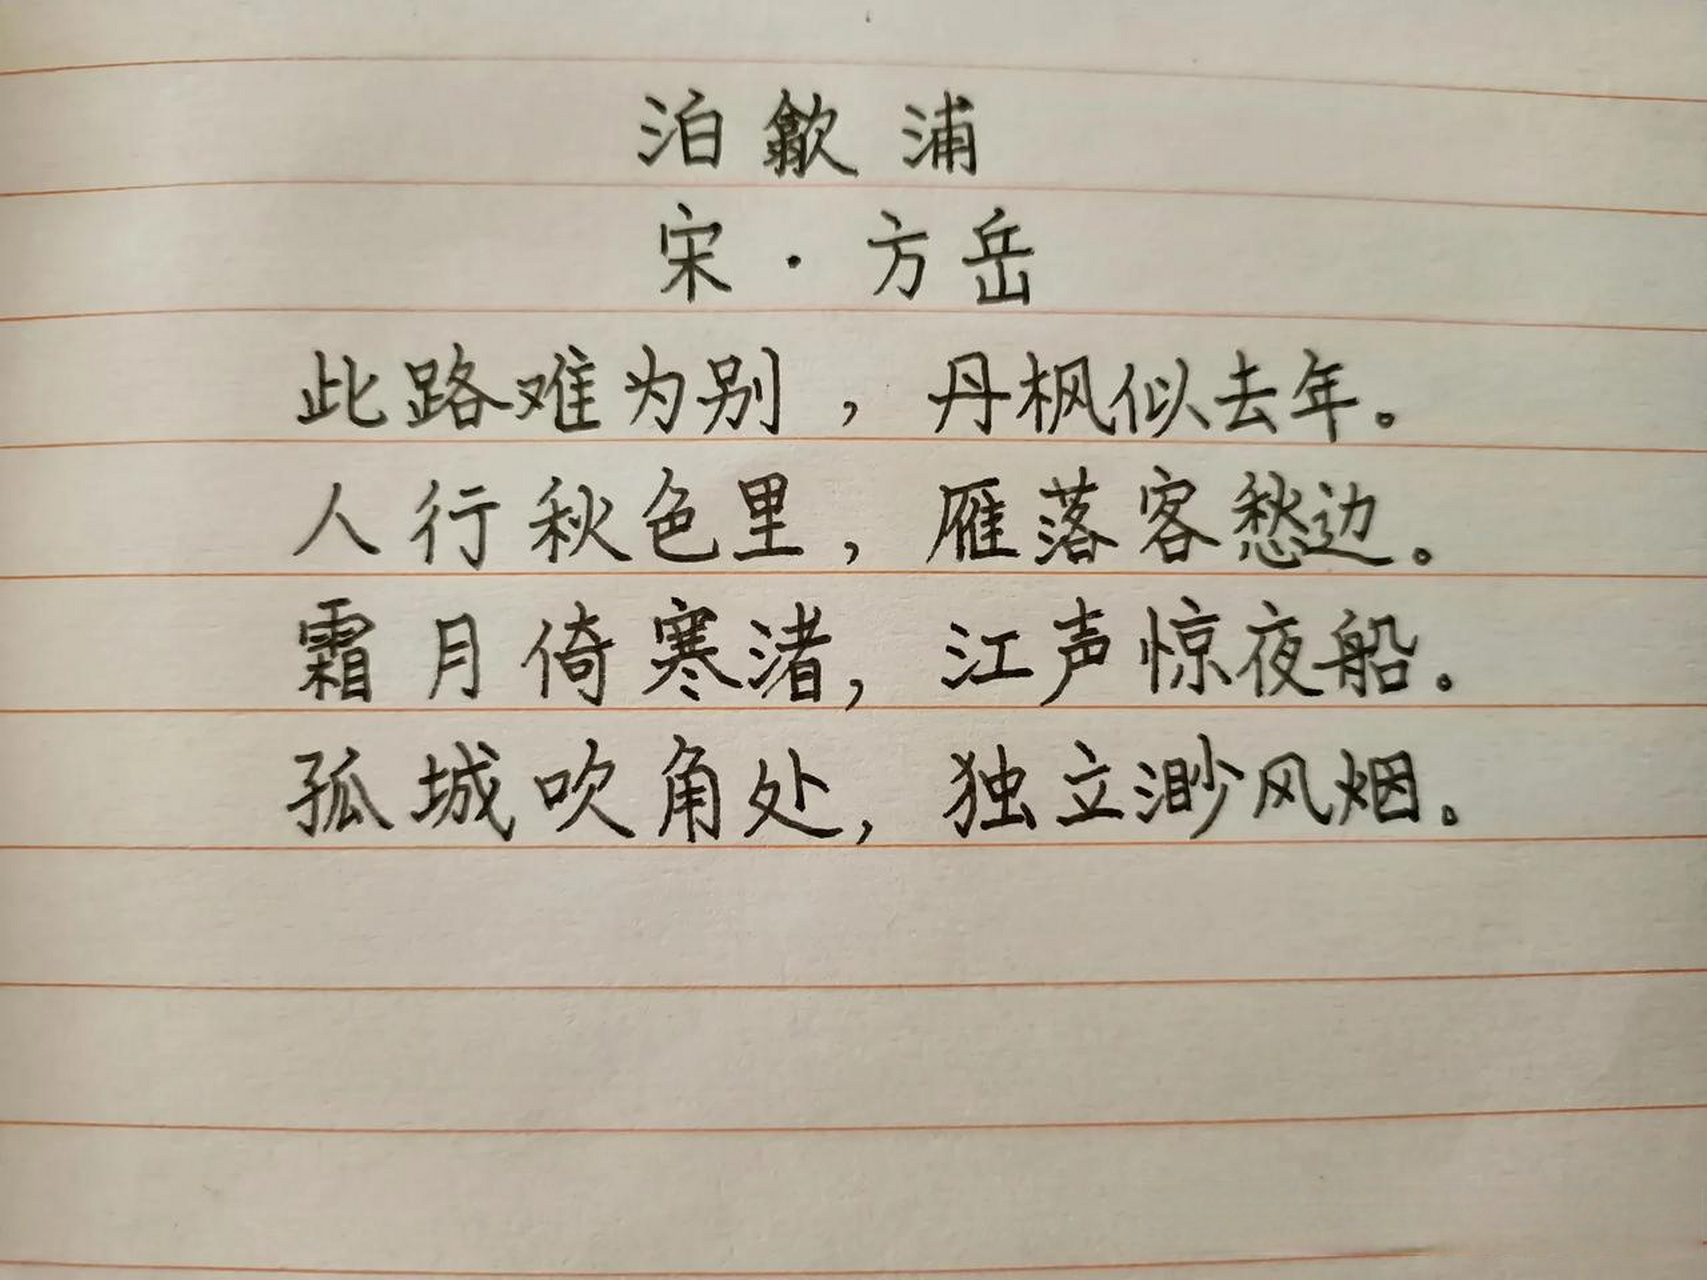 泊歙浦
宋·方岳
此路难为别，丹枫似去年。
人行秋色里，雁落客愁边。
霜月倚寒渚，江声惊夜船。
孤城吹角处，独立渺风烟。